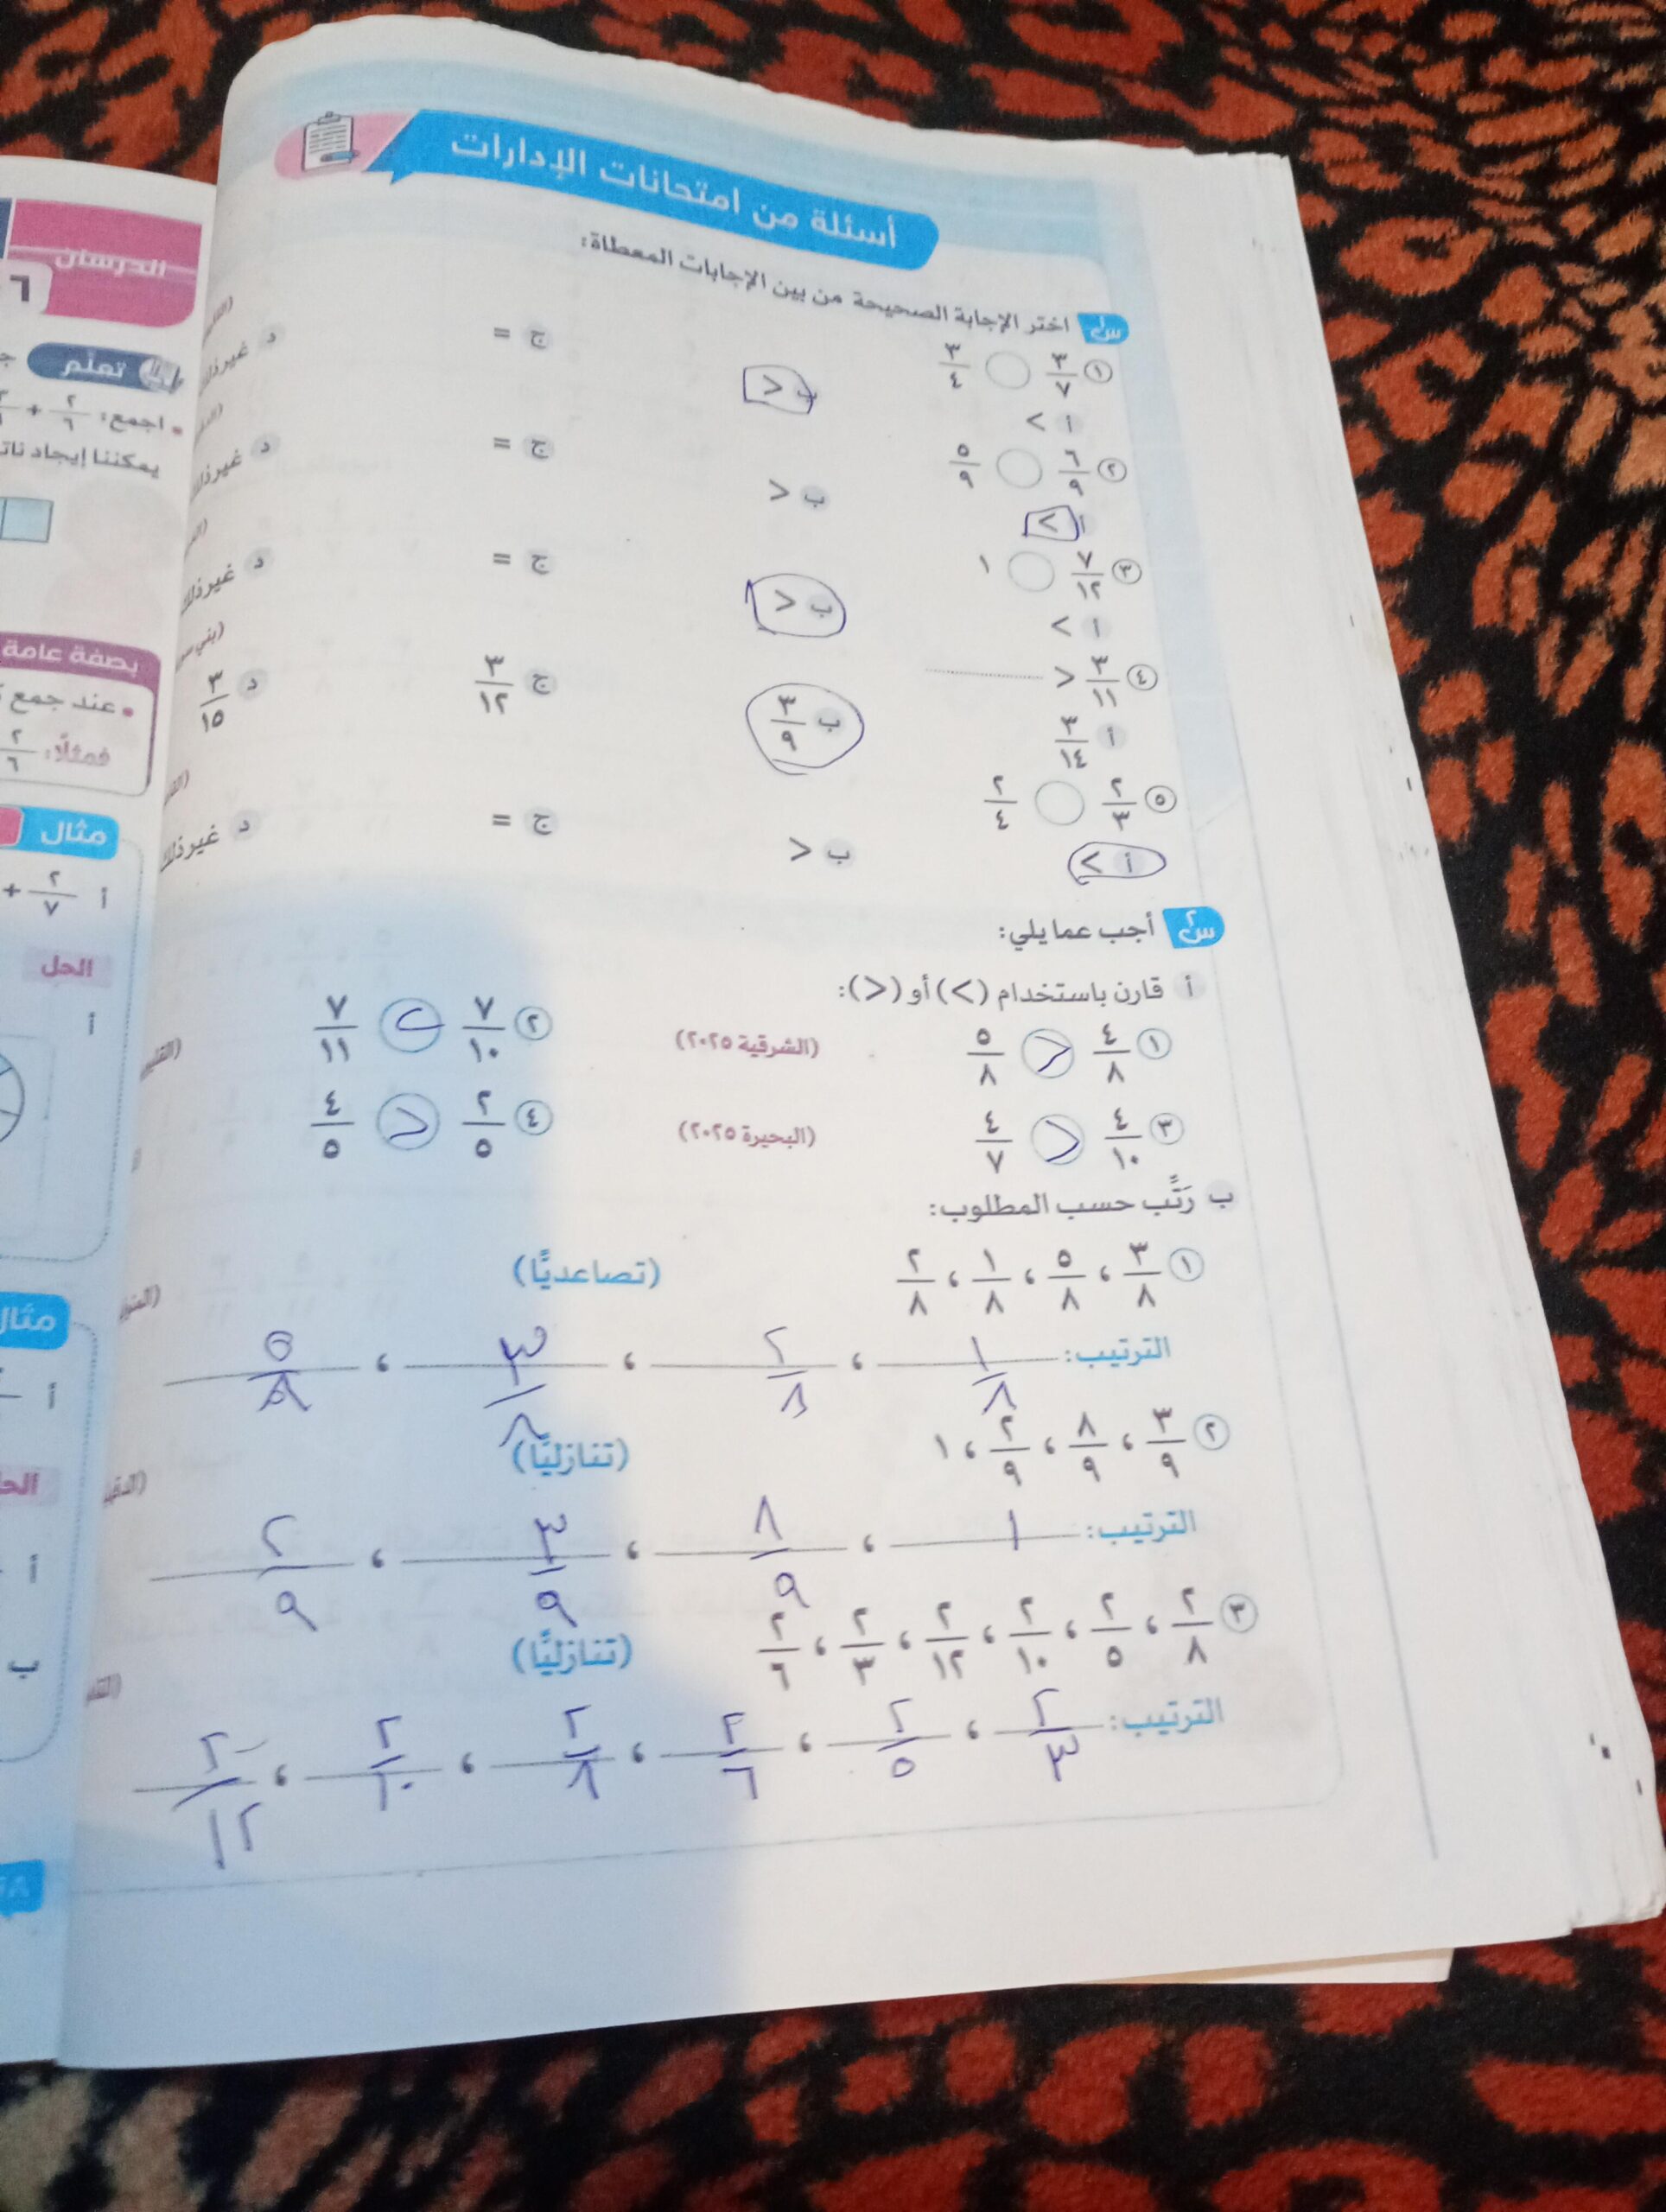 أسئلة من امتحانات الإدارات
س١ اختر الإجابة الصحيحة من بين الإجابات المعطاة:
١ ٣/٧ ○ ٣/٤
أ > ب < ج = د غير ذلك
٢ ٦/٩ ○ ٥/٩
أ > ب < ج = د غير ذلك
٣ ٧/١٢ ○ ١
أ > ب < ج = د غير ذلك
(بني سو
٤ ٣/١١ < ..........
أ ٣/١٤ ب ٣/٩ ج ٣/١٢ د ٣/١٥
٥ ٢/٣ ○ ٢/٤
أ > ب < ج = د غير ذلك
س٢ أجب عما يلي:
أ قارن باستخدام (>) أو (<):
١ ٤/٨ < ٥/٨ (الشرقية ٢٠٢٥) ٢ ٧/١٠ > ٧/١١
٣ ٤/١٠ < ٤/٧ (البحيرة ٢٠٢٥) ٤ ٢/٥ < ٤/٥
ب رَتِّب حسب المطلوب:
١ ٣/٨ ، ٥/٨ ، ١/٨ ، ٢/٨ (تصاعديًّا)
الترتيب: ١/٨ ، ٢/٨ ، ٣/٨ ، ٥/٨
٢ ٣/٩ ، ٨/٩ ، ٢/٩ ، ١ (تنازليًّا)
الترتيب: ١ ، ٨/٩ ، ٣/٩ ، ٢/٩
٣ ٢/٨ ، ٢/٥ ، ٢/١٠ ، ٢/١٢ ، ٢/٣ ، ٢/٦ (تنازليًّا)
الترتيب: ٢/٣ ، ٢/٥ ، ٢/٦ ، ٢/٨ ، ٢/١٠ ، ٢/١٢
الدرسان
٦
تعلَّم
• اجمع: ٢/٦ +
يمكننا إيجاد نات
بصفة عامة
• عند جمع
فمثلًا: ٢/٦
مثال
أ ٢/٧ +
الحل
أ
مثال
أ
الحل
أ
ب